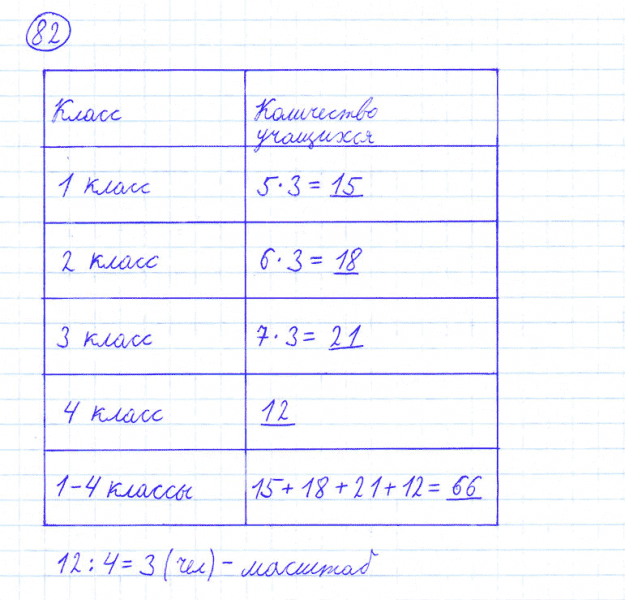 82
Класс
Количество
учащихся
1 класс
5·3 = 15
2 класс
6·3 = 18
3 класс
7·3 = 21
4 класс
12
1-4 классы
15+18+21+12= 66
12:4=3(чел)- масштаб